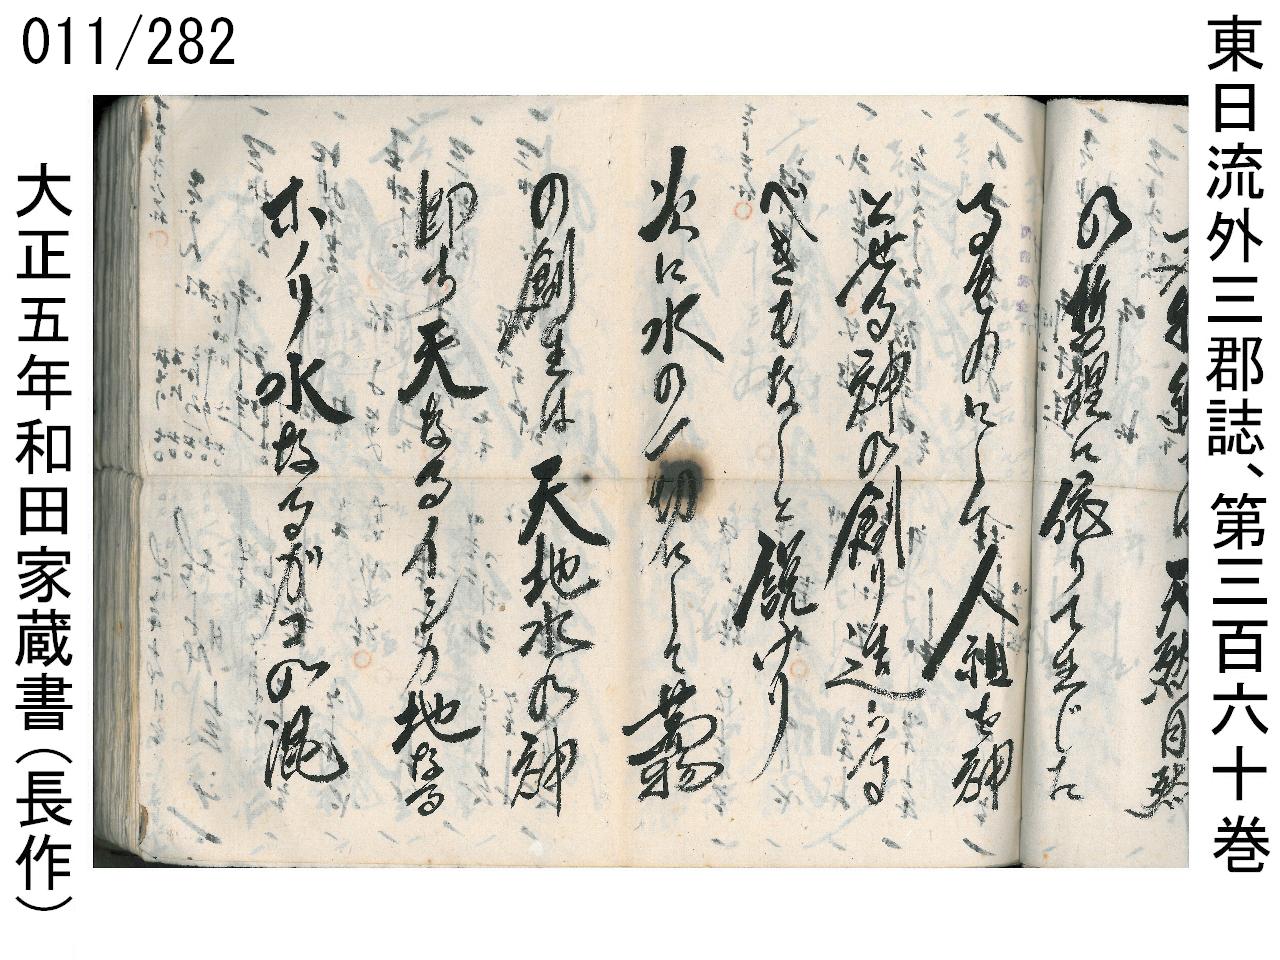 東日流外三郡誌、第三百六十巻
の哲理に依りて生じた
るものにして人祖を神
とせる神の創り造らる
べきもなしと説けり
次に水の一切にして萬物
の創生は天地水の神
即ち天なるイシカ地なる
ホノリ水なるガコの混
011/282
大正五年和田家蔵書(長作)